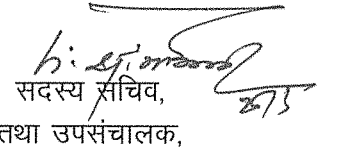 सदस्य सचिव,
तथा उपसंचालक,